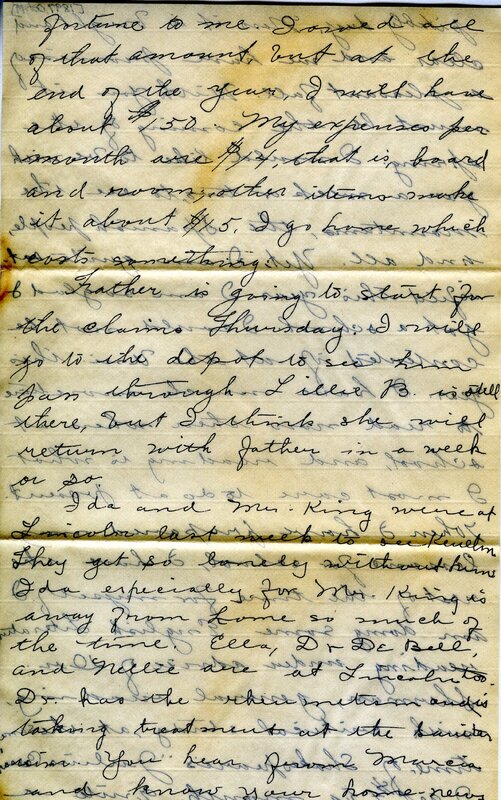 fortune to me. I owed all
of that amount but at the
end of the year, I will have
about $150. My expenses per
month are $14, that is, board
and room, other items make
it about $15. I go home, which
costs something.
Father is going to start for
the claims Thursday. I will
go to the depot to see him
pass through. Lillie B. is still
there, but I think she will
return with father in a week
or so.
Ida and Mr. King were at
Lincoln last week to see
They get so lonely without him
Ida especially for Mr. King is
away from home so much of
the time. Ella, Dr De Bell,
and Nellie are at Lincoln too.
Dr. has the rheumatism and is
taking treatment at the sanitar
ium. You hear from Marcia
and know your home-news